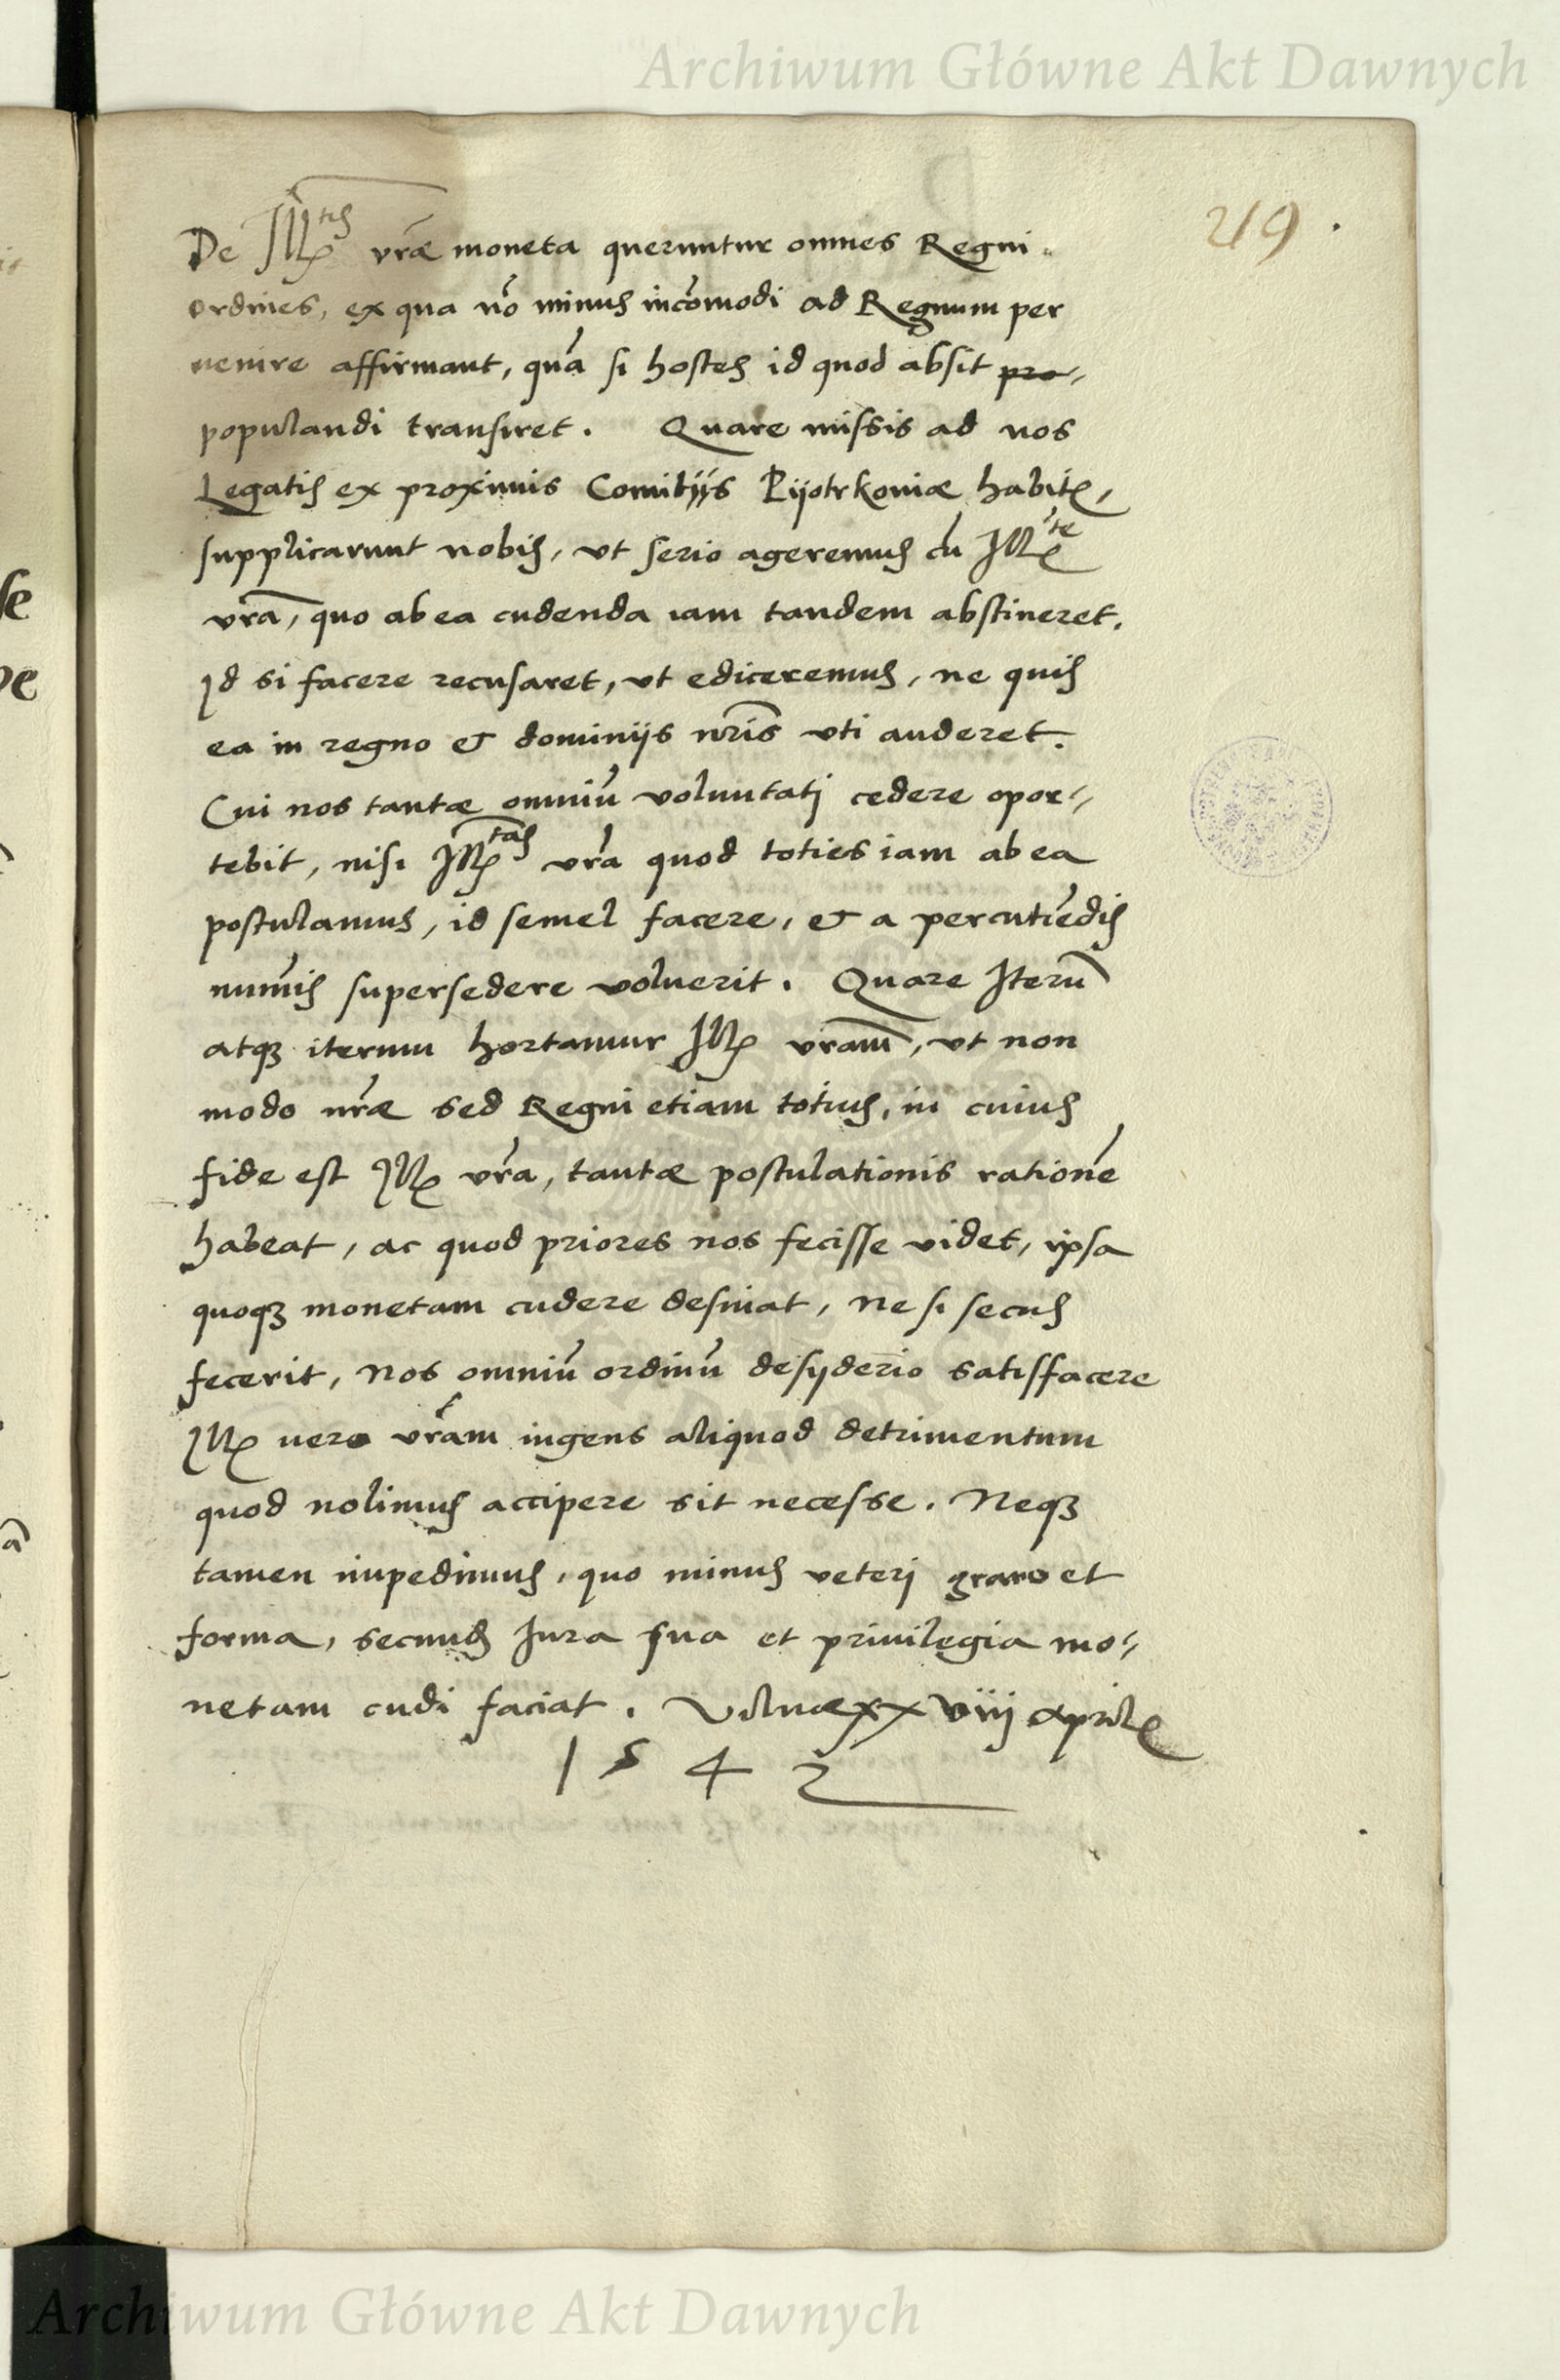 Archiwum Główne Akt Dawnych
219.
De Illtis vrae moneta queruntur omnes Regni
ordines, ex qua no minus incomodi ad Regnum per
uenire affirmant, qua si hostes id quod absit pro-
populandi transiret. Quare missis ad nos
Legatis ex proximis Comitijs Pijotrkoniæ habit,
supplicarunt nobis, vt serio ageremus cu Illte
vra, quo ab ea cudenda iam tandem abstineret.
Id si facere recusaret, vt ediceremus, ne quis
ea in regno & dominijs nris vti auderet.
Cui nos tantæ omniu voluntatj cedere opor-
tebit, nisi Illtas vra quod toties iam ab ea
postulamus, id semel facere, & a percutiedis
numis supersedere voluerit. Quare Iteru
atqz iterum hortamur Ill vram, vt non
modo nræ sed Regni etiam totius, in cuius
fide est Ill vra, tantæ postulationis ratione
habeat, ac quod priores nos fecisse videt, ipsa
quoqz monetam cudere desinat, ne si secus
fecerit, Nos omniu ordinu desyderio satisfacere
Ill uero vram ingens aliquod detrimentum
quod nolimus accipere sit necesse. Neqz
tamen impedimus, quo minus veterj grano et
forma, secundu Iura sua et priuilegia mo-
netam cudi faciat. Vilnæ xxviij Aprilis
1542
Archiwum Główne Akt Dawnych